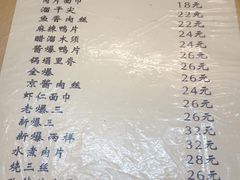 肉片面巾 18元
溜干尖 22元
鱼香肉丝 22元
麻辣鸭片 24元
醋溜木须 22元
酱爆鸭片 24元
锅塌里脊 26元
全爆 26元
京酱肉丝 26元
虾仁面巾 26元
老爆三 26元
新爆三 26元
新爆两样 32元
水煮肉片 28元
烧三丝 26元